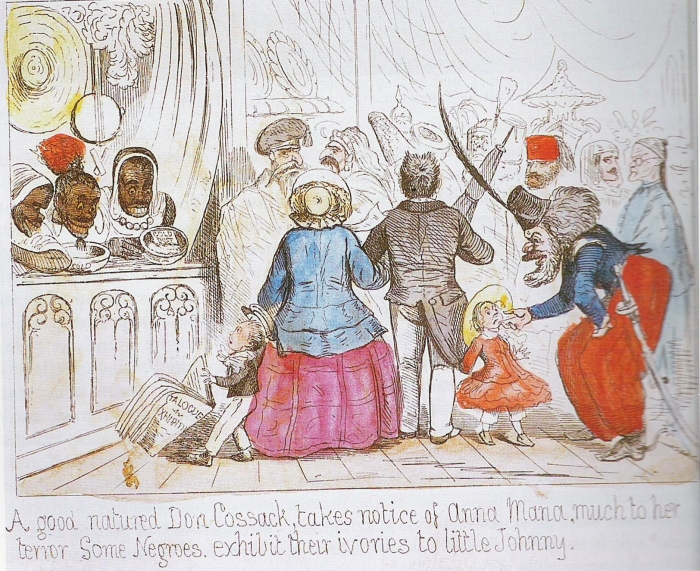 TALOGUE
XHIBIT
A good natured Don Cossack, takes notice of Anna Maria, much to her
terror Some Negroes. exhibit their ivories to little Johnny.